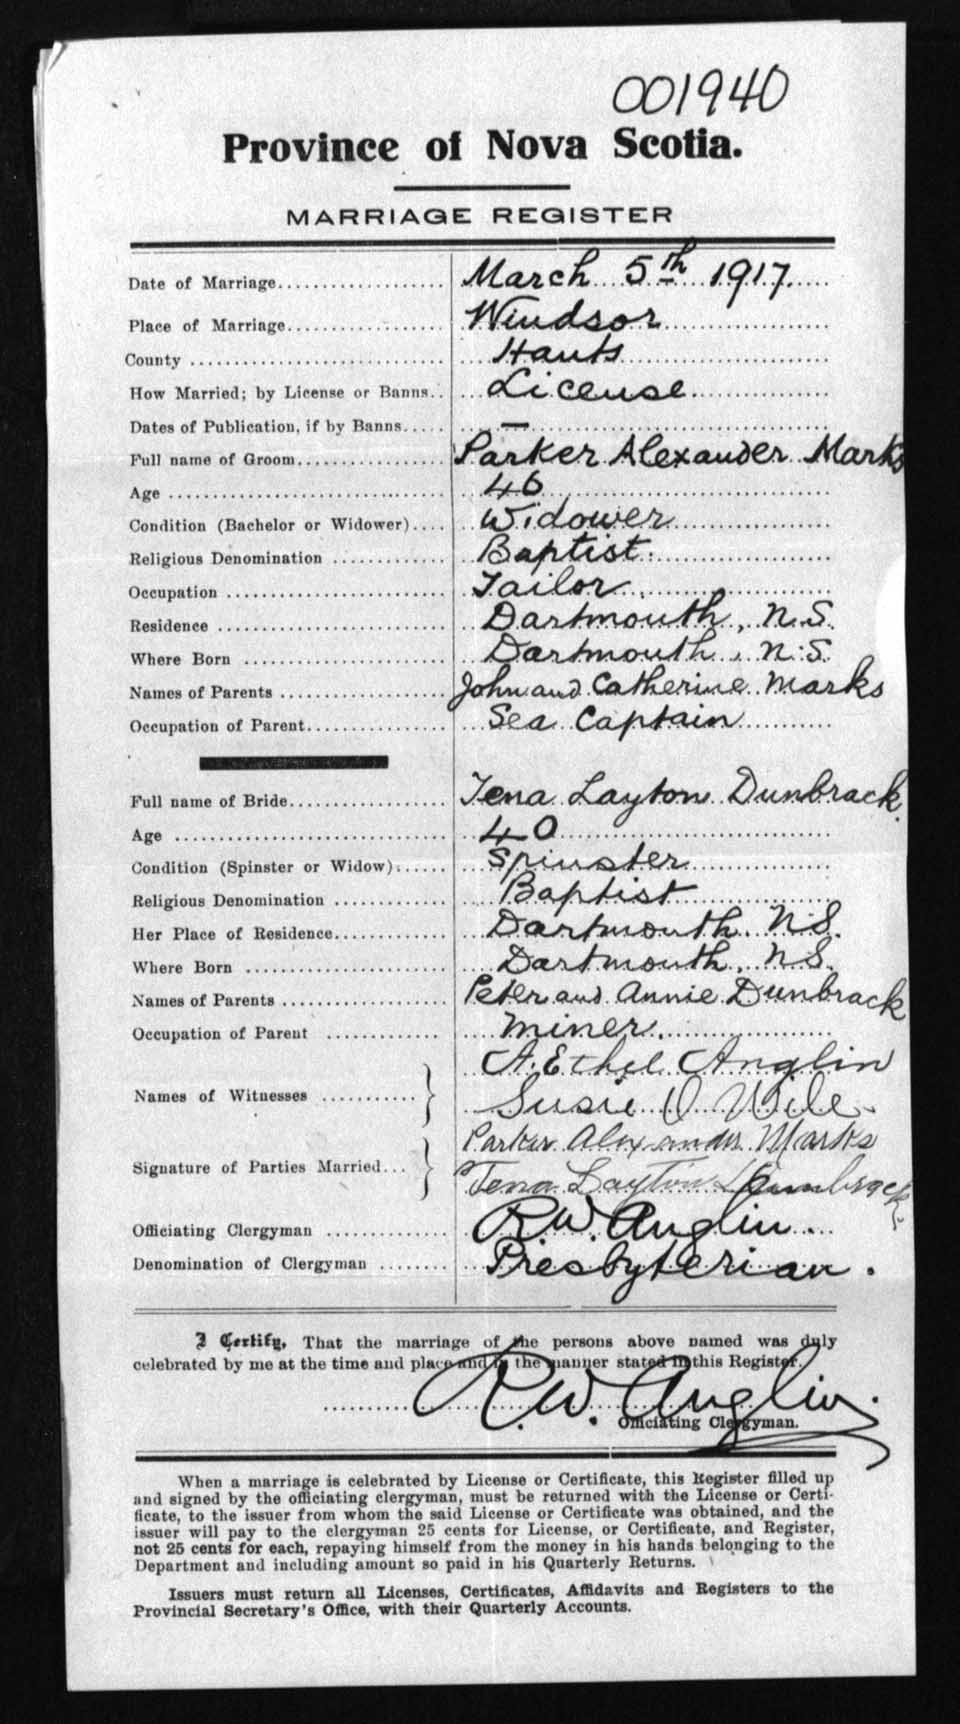 001940
Province of Nova Scotia.
MARRIAGE REGISTER
Date of Marriage.................... March 5th 1917.
Place of Marriage.................. Windsor
County .............................. Hants
How Married; by License or Banns.. License
Dates of Publication, if by Banns..... —
Full name of Groom.................. Parker Alexander Marks
Age ................................. 46
Condition (Bachelor or Widower).... Widower
Religious Denomination .............. Baptist.
Occupation ........................... Tailor
Residence ............................ Dartmouth, N.S.
Where Born ......................... Dartmouth, N.S.
Names of Parents .................... John and Catherine Marks
Occupation of Parent................. Sea Captain
Full name of Bride................... Tena Layton Dunbrack.
Age ................................. 40
Condition (Spinster or Widow)...... Spinster
Religious Denomination .............. Baptist
Her Place of Residence.............. Dartmouth N.S.
Where Born ......................... Dartmouth, N.S.
Names of Parents .................... Peter and Annie Dunbrack
Occupation of Parent .............. Miner.
A. Ethel Anglin
Names of Witnesses ...........
Susie O Wile.
Parker Alexander Marks
Signature of Parties Married...
Tena Layton Dunbrack.
Officiating Clergyman .............. R.W. Anglin.
Denomination of Clergyman ........ Presbyterian.
I Certify, That the marriage of the persons above named was duly
celebrated by me at the time and place and in the manner stated in this Register.
R.W. Anglin.
Officiating Clergyman.
When a marriage is celebrated by License or Certificate, this Register filled up
and signed by the officiating clergyman, must be returned with the License or Certi-
ficate, to the issuer from whom the said License or Certificate was obtained, and the
issuer will pay to the clergyman 25 cents for License, or Certificate, and Register,
not 25 cents for each, repaying himself from the money in his hands belonging to the
Department and including amount so paid in his Quarterly Returns.
Issuers must return all Licenses, Certificates, Affidavits and Registers to the
Provincial Secretary's Office, with their Quarterly Accounts.